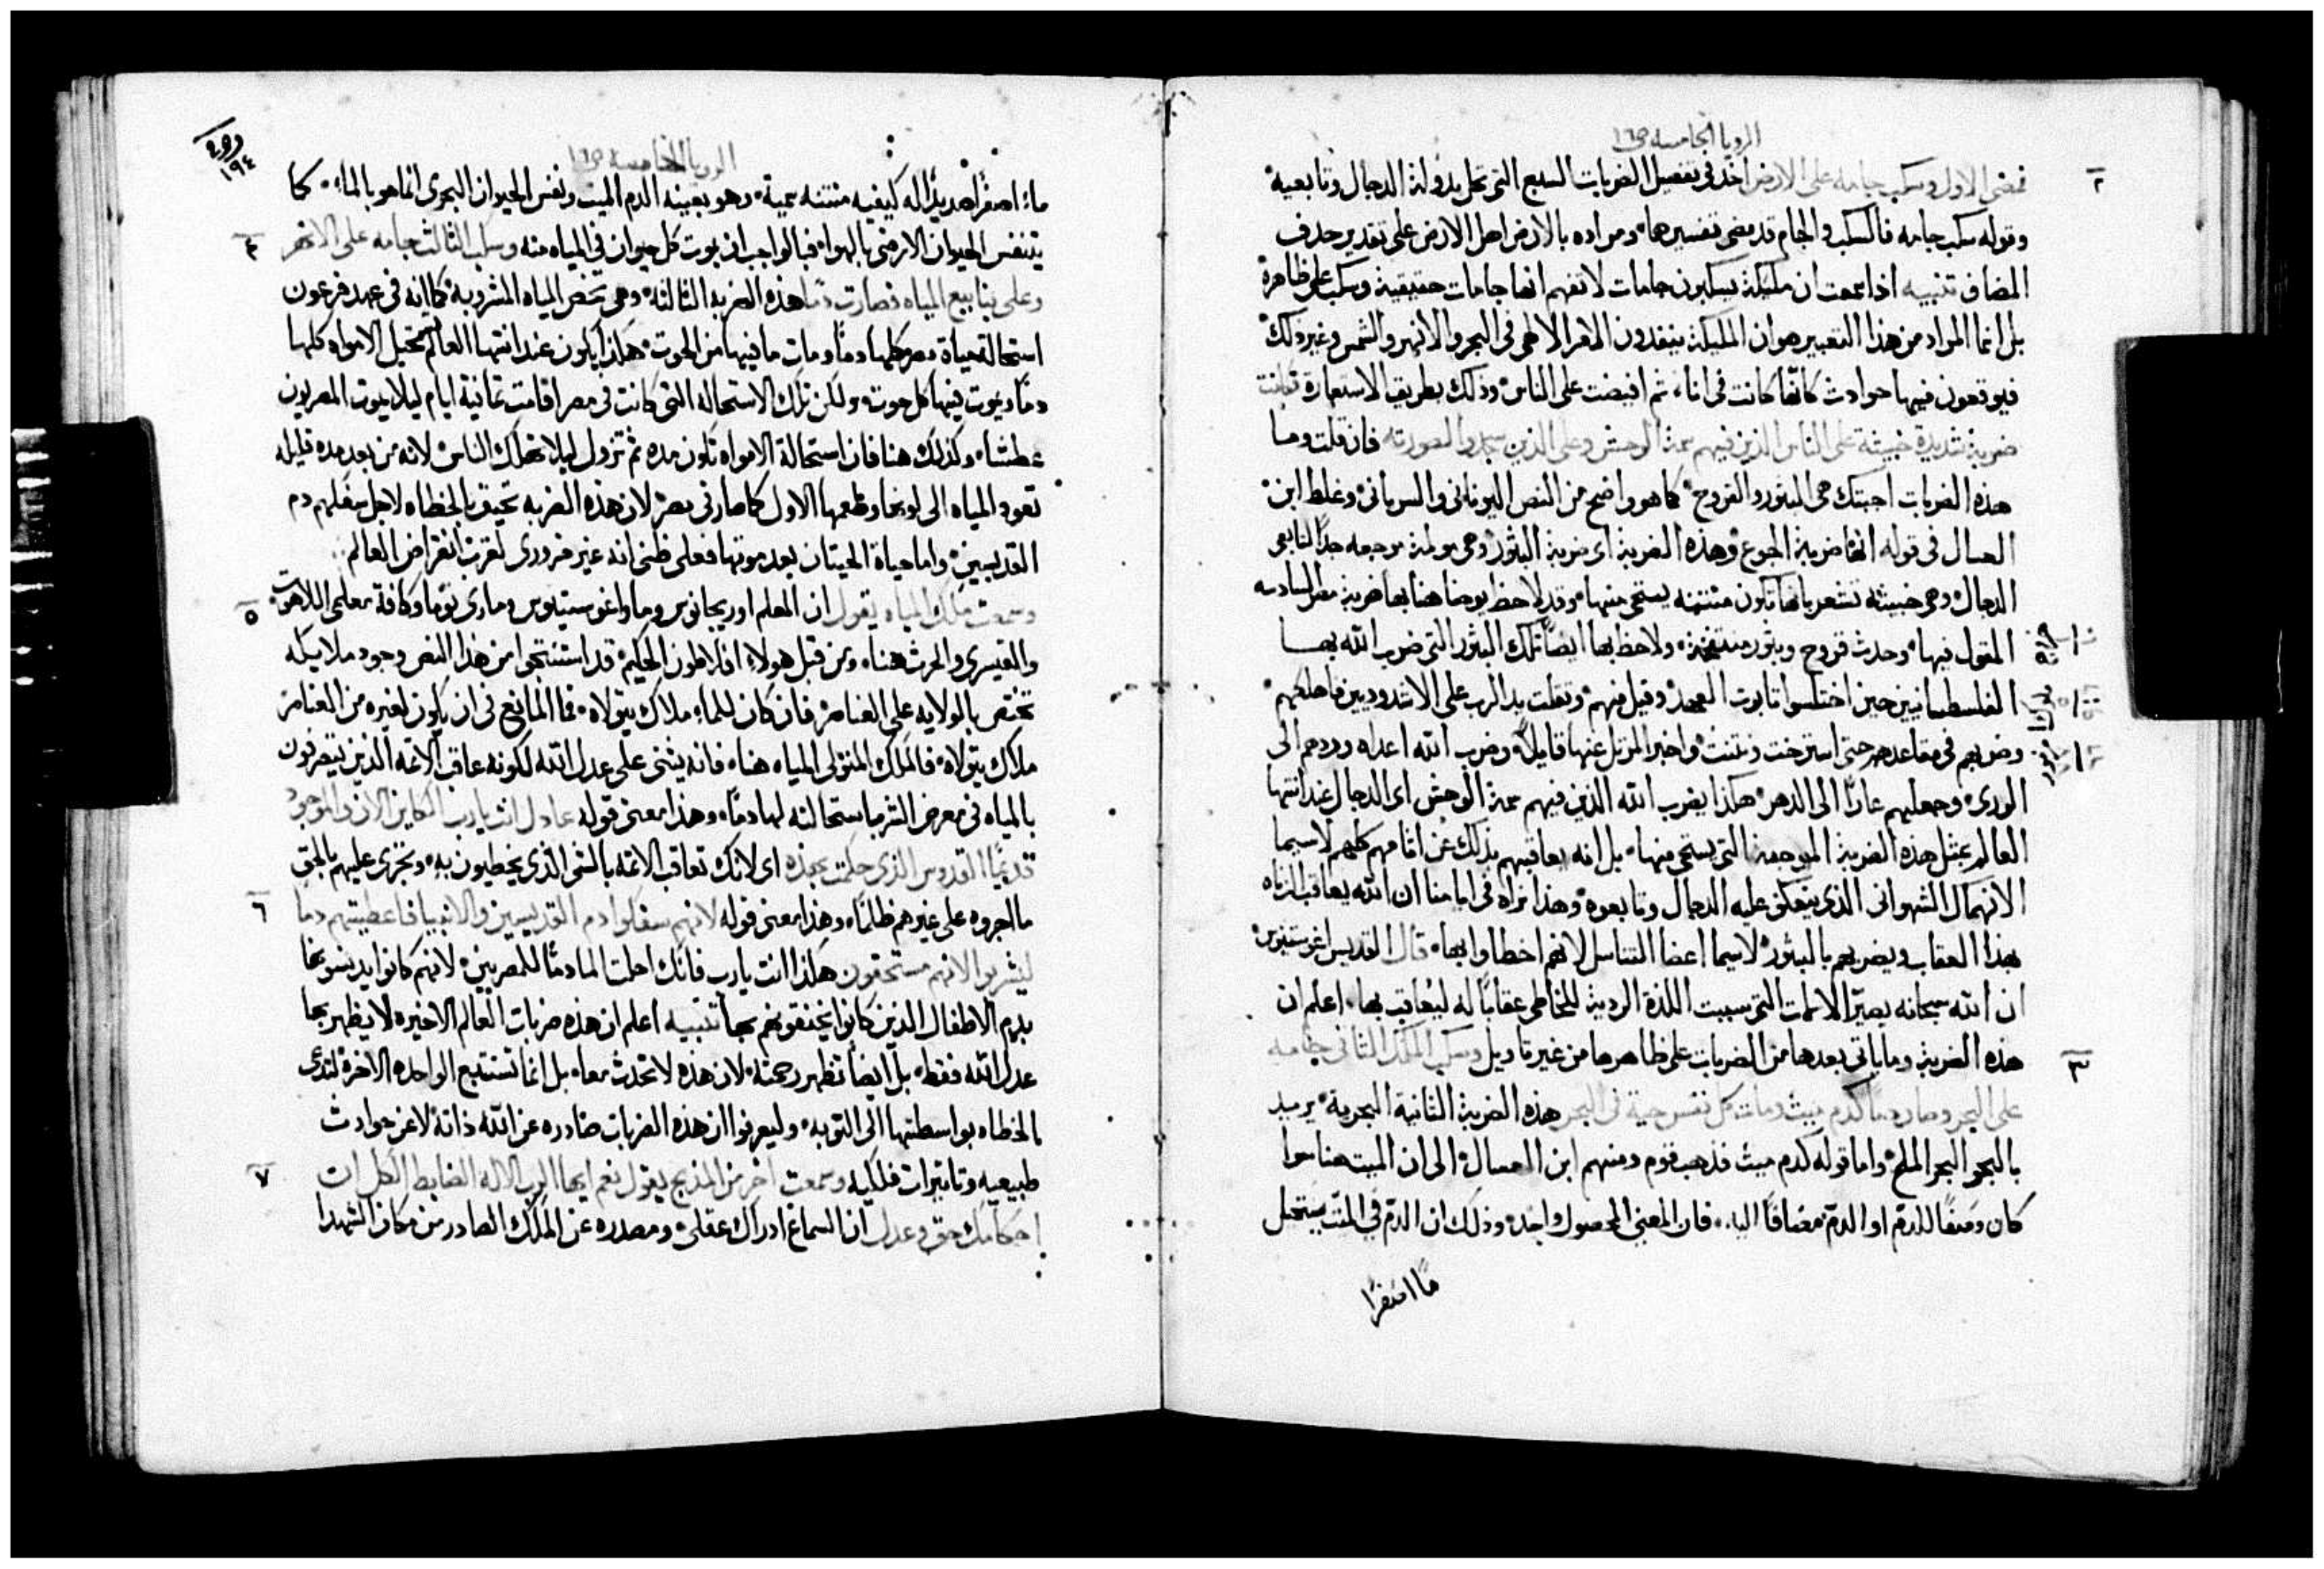 الرويا الخامسه ص١٦
٢
فمضى الاول وسكب جامه على الارض اخذ فى تفصيل الضربات السبع التى تحل بدولة الدجال وتابعيه
وقوله سكب جامه فالسكب والجام قد مضى تفسيرهما ومراده بالارض اهل الارض على تقدير حذف
المضاف تنبيه اذا سمعت ان مليكة يسكبون جامات لا تفهم انها جامات حقيقية وسكب على ظاهرة
بل انما المراد من هذا التعبير هو ان المليكة ينفدون الامر الالاهى فى البحر والانهر والشمس وغير ذلك
فيوقعون فيها حوادث كانها كانت فى اناء ثم افيضت على الناس وذلك بطريق الاستعارة فكانت
ضربة شديدة خبيثة على الناس الذين فيهم سمة الوحش وعلى الذين سجدوا لصورته فان قلت وما
هذه الضربات اجبتك هى البثور والقروح كما هو واضح من النص اليونانى والسريانى وغلط ابن
العسال فى قوله انها ضربة الجوع وهذه الضربة اى ضربة البثور وهى مولمة موجعه جدا لتابعى
الدجال وهى خبيثه تشعر بانها تكون منتنه يستحى منها وقد لاحظ يوحنا هنا بها ضربة مصر السادسه
المقول فيها وحدث قروح وبثور منتفخة ولاحظ بها ايضا تلك البثور التى ضرب الله بها
الفلسطانيين حين اختلسوا تابوت العهد وقيل فيهم وثقلت يد الرب على الاشدوديين فاهلكهم
وضربهم فى مقاعدهم حتى استرخت ونتنت واخبر المرتل عنها قايلا وضرب الله اعداه وردهم الى
الورى وجعلهم عارا الى الدهر هكذا يضرب الله الذين فيهم سمة الوحش اى الدجال عند انتها
العالم بمثل هذه الضربة الموجعة التى يستحى منها بل انه يعاقبهم بذلك عن اثامهم كلهم لاسيما
الانهمال الشهوانى الذى يتعكف عليه الدجال وتابعوه وهذا نراه فى ايامنا ان الله يعاقب الزناه
بهذا العقاب ويضربهم بالبثور لاسيما اعضا التناسل لانهم اخطاوا بها قال القديس اغوستينوس
ان الله سبحانه يصيّر الالات التى سببت اللذة الردية للخاطى عقابا له ليعاقب بها اعلم ان
٣
هذه الضربة وما ياتى بعدها من الضربات على ظاهرها من غير تاويل وسكب الملك الثانى جامه
على البحر وصار دما كدم ميث ومات كل نفس حية فى البحر هذه الضربة الثانية البحرية يريد
بالبحر البحر الملح واما قوله كدم ميث فذهب قوم ومنهم ابن العسال الى ان الميت هنا سوا
كان وصفا للدم او الدم مضافا اليه فان المعنى المحصول واحد وذلك ان الدم فى الميت يستحيل
ما اصفرا
١٩٤
الرويا الخامسه ص١٦
ماء اصفر اصديدا له كيفيه منتنه سمية وهو بعينه الدم الميت ونفس الحيوان البحرى انما هو بالماء كما
٤
يتنفس الحيوان الارضى بالهواء فبالواجب ان يموت كل حيوان فى المياه منه وسكب الثالث جامه على الانهر
وعلى ينابيع المياه فصارت دما هذه الضربه الثالثه وهى تخص المياه المشروبه كما انه فى عهد فرعون
استحالة مياة مصر كلها دما ومات ما فيها من الحوت هكذا يكون عند انتها العالم تحتيل الامواه كلها
دما ويموت فيها كل حوت ولكن تلك الاستحاله التى كانت فى مصر اقامت ثمانية ايام ليلا يموت المصريون
عطشا وكذلك هنا فان استحالة الامواه تكون مده ثم تزول ليلا تهلك الناس لانه من بعد مده قليله
تعود المياه الى لونها وطعمها الاول كما صار فى مصر لان هذه الضربه تحيق بالخطاه لاجل سفكهم دم
القديسين واما حياة الحيتان بعد موتها فعلى ظنى انه غير ضرورى لقرب انقراض العالم
٥
وسمعت ملك المياه يقول ان المعلم اوريجانوس وما واغوستينوس ومارى توما وكافة معلمى اللاهوت
والقيسرى والحرث هنا ومن قبل هولاء افلاطون الحكيم قد استنتجوا من هذا النص وجود ملايكه
تختص بالولايه على العناصر فان كان للماء ملاك يتولاه فما المانع فى ان يكون لغيره من العناصر
ملاك يتولاه فالملك المتولى المياه هنا فانه يثنى على عدل الله لكونه عاقب الاثمه الذين يتصرفون
بالمياه فى معرض الشر باستحالته لها دما وهذا معنى قوله عادل انت يارب الكاين الان والموجود
قديما القدوس الذى حكمت بهذه اى لانك تعاقب الاثمه بالشى الذى يخطيون به وتجزى عليهم بالحق
٦
ما اجروه على غيرهم ظلما وهذا معنى قوله لانهم سفكوا دم القديسين والانبيا فاعطيتهم دما
ليشربوا لانهم مستحقون هكذا انت يارب فانك احلت الما دما للمصريين لانهم كانوا يدنسونها
بدم الاطفال الذين كانوا يخنقونهم بها تنبيه اعلم ان هذه ضربات العالم الاخيره لا يظهر بها
عدل الله فقط بل ايضا تظهر رحمته لان هذه لا تحدث معا بل انما تستتبع الواحده الاخرة لتدعى
الخطاه بواسطتها الى التوبه وليعرفوا ان هذه الضربات صادره عن الله ذاته لا عن حوادث
٧
طبيعيه وتاثيرات فلكيه وسمعت اخر من المذبح يقول نعم ايها الرب الاله الضابط الكل ان
احكامك حق وعدل ان السماع ادراك عقلى ومصدره عن الملك الصادر من مكان الشهدا